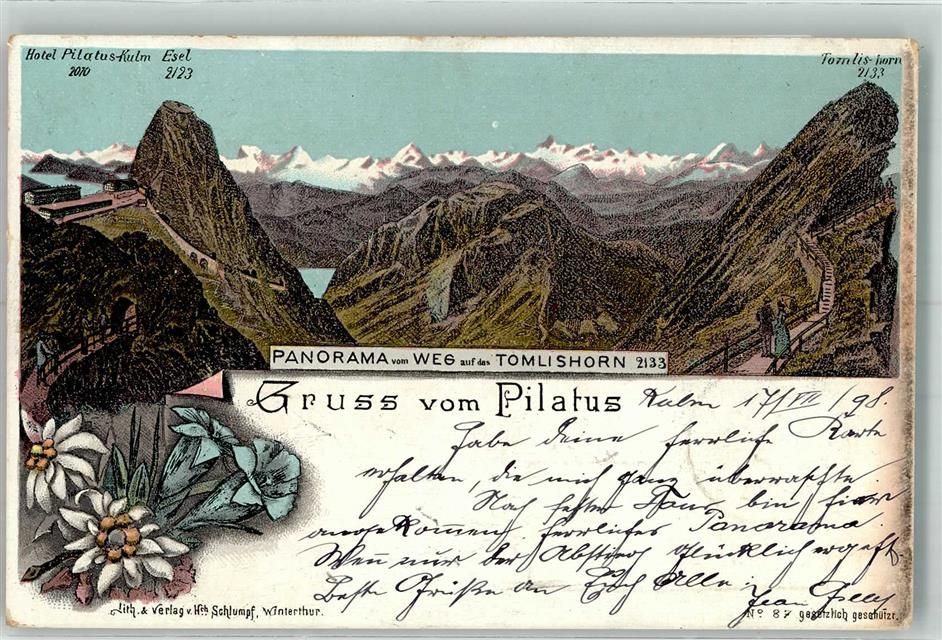 Hotel Pilatus-Kulm Esel
2070 2123
Tomlis-horn
2133
PANORAMA vom WEG auf das TOMLISHORN 2133
Gruss vom Pilatus Kulm 17/VII/98.
Habe deine herrliche Karte
erhalten, die mich ganz überraschte.
Nach fester Tour bin hier
angekommen, herrliches Panorama.
Wenn nur der Abstieg glücklich
Beste Grüße an Euch Alle. Jean
Lith. & Verlag v. Hch Schlumpf, Winterthur.
No 87 gesetzlich geschützt.